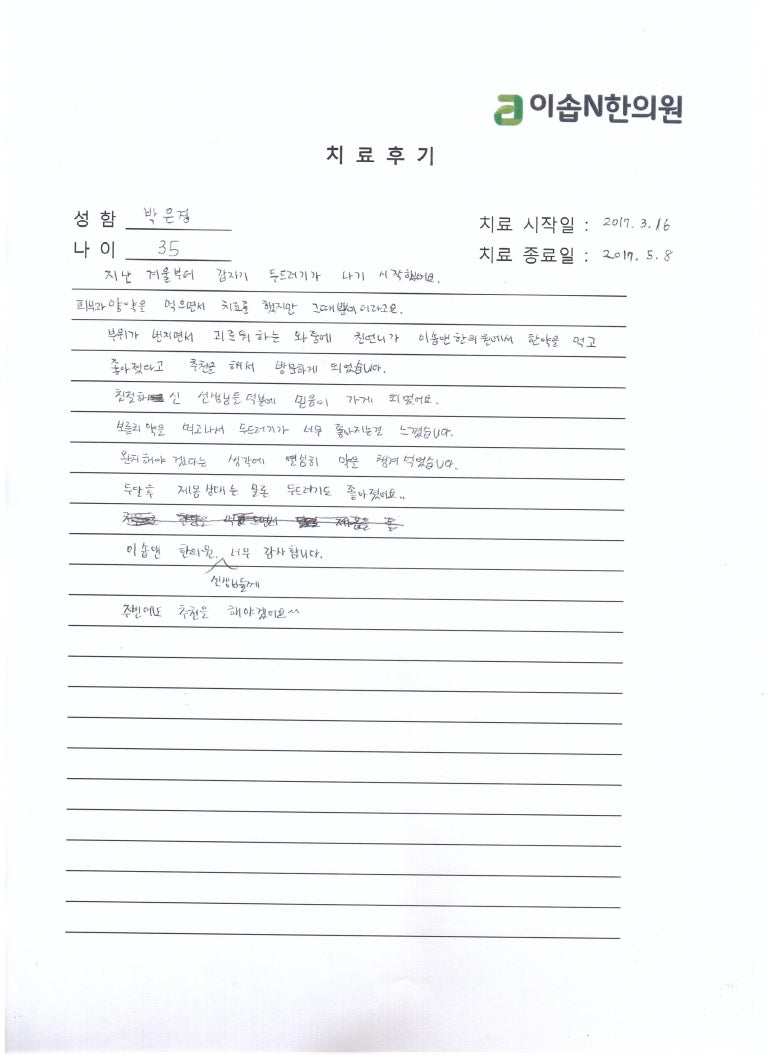 이솝N한의원
치료후기
성함 박은정
나이 35
치료 시작일 : 2017. 3. 16
치료 종료일 : 2017. 5. 8
지난 겨울부터 갑자기 두드러기가 나기 시작했어요.
피부과 양약을 먹으면서 치료를 했지만 그때뿐이더라고요.
부위가 번지면서 괴로워 하는 와중에 친언니가 이솝앤한의원에서 한약을 먹고
좋아졌다고 추천을 해서 방문하게 되었습니다.
친절하신 선생님들 덕분에 믿음이 가게 되었어요.
보름치 약을 먹고나서 두드러기가 너무 좋아지는걸 느꼈습니다.
완치해야 겠다는 생각에 열심히 약을 챙겨 먹었습니다.
두달 후 제 몸 상태는 물론 두드러기도 좋아졌어요..
이솝앤 한의원.. 너무 감사합니다.
선생님들께
주변에도 추천을 해야겠어요^^